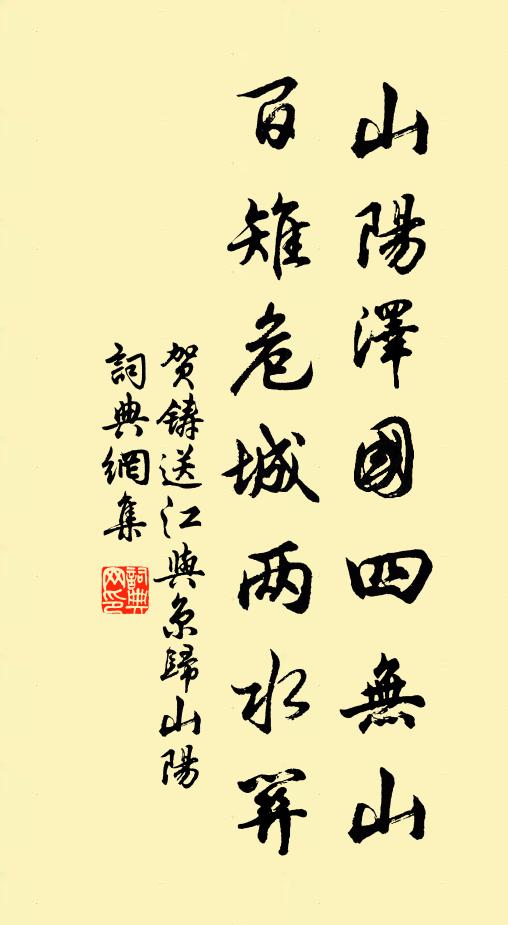 山陽澤國四無山
百雉危城两水關
贺鑄送江與京歸山陽
詞典網集
詞典网印